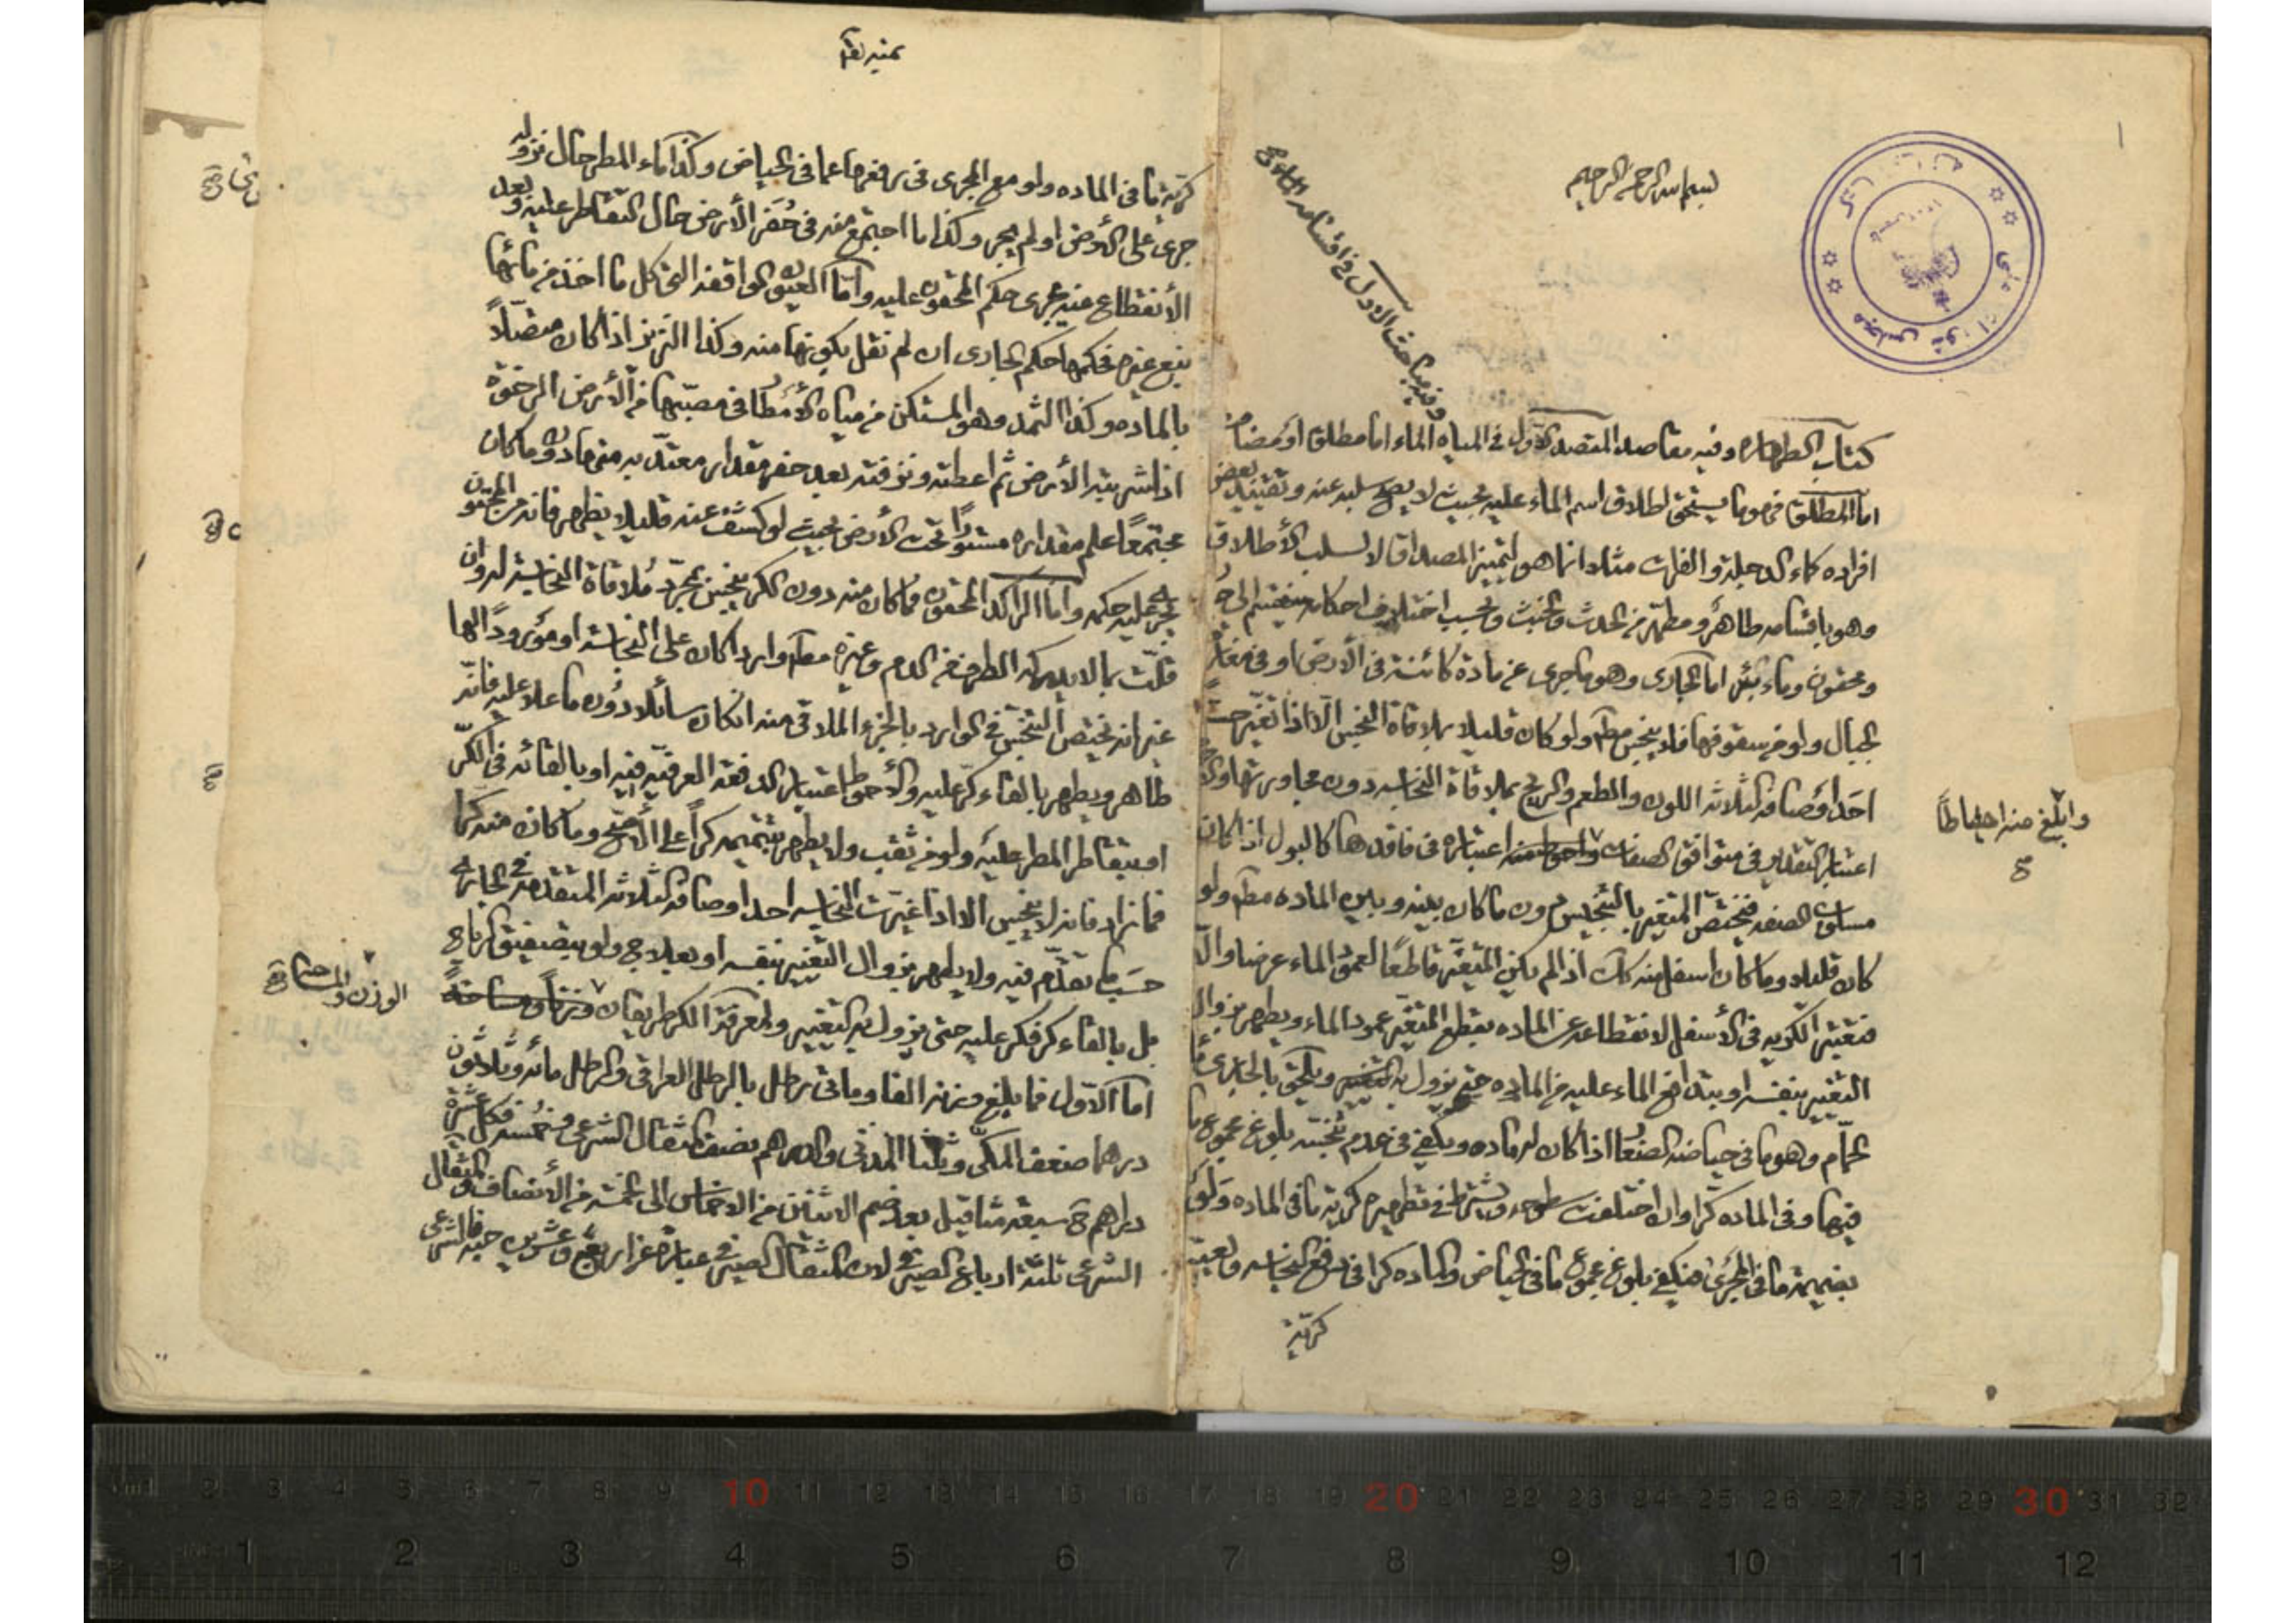 بسم الله الرحمن الرحيم
وفيه مباحث الاول في اقسامه
كتاب الطهارة وفيه مقاصد المقصد الاول في المياه الماء اما مطلق او مضاف
اما المطلق فهو ما يستحق اطلاق اسم الماء عليه بحيث لا يصح سلبه عنه وتقييد بعض
افراده كماء الدجلة والفرات مثلا انما هو لتمييز المصداق لا لسلب الأطلاق
وهو باقسامه طاهر ومطهّر من الحدث والخبث وبحسب اختلاف احكامه ينقسم الى
ومحقون وماء بئر اما الجاري وهو ما جرى عن مادة كائنة في الأرض او في مغار
الجبال ولو من سقوفها فلا ينجس مطلقا ولو كان قليلا بملاقاة النجس الّا اذا تغيّر
احد اوصافه الثلاثة اللون والطعم والريح بملاقاة النجاسة دون مجاورتها
اعتبار التقدير في متوافق الصفات اعتباره في فاقدها كالبول اذا كان
وابلغ منه احتياطاً
مسلوب الصفة فيختص المتغير بالتنجيس دون ما كان بينه وبين الماده مطلقا ولو
كان قليلا وما كان اسفل منه اذا لم يكن المتغيّر قاطعًا لعمود الماء عرضا والّا
فتعتبر الكرية في الأسفل لانقطاعه عن الماده بقطع المتغيّر عمود الماء ويطهر بزوال
التغيير بنفسه او بتدافع الماء عليه من الماده حتى يزول به التغيير ويلحق بالجاري
الحمّام وهو ما في حياضه الصغار اذا كان له ماده ويكفي في عدم تنجسه بلوغ مجموع ما
فيها وفي الماده كرّا وان اختلفت سطوحه ويشترط في تطهيره كرية ما في الماده ولو
بضميمة ما في المجرى فيكفي بلوغ مجموع ما في الحياض والماده كرا في دفع النجاسة
كرّية
كرّية ما في الماده ولو مع المجرى في رفعها عما في الحياض وكذا ماء المطر حال نزوله
جرى على الأرض او لم يجر وكذا ما اجتمع منه في حُفَر الأرض حال التقاطر عليه وبعد
الأنقطاع عنه يجرى حكم المحقون عليه وامّا العيون الواقفة التي كل ما اخذ من مائها
نبع غيره فحكمها حكم الجاري ان لم نقل بكونها منه وكذا النزيز اذا كان متصلاً
بالماده وكذا الثمد وهو المستكن من مياه الأمطار في مصبّها من الأرض الرخوة
اذا شربته الأرض ثم اعطته ونزفته بعد حفر مقدار معتدّ به منها دون ما كان
مجتمعًا علم مقداره مستورًا تحت الأرض بحيث لو كشف عنه قليلا يظهر فانه من المحقون
يجرى عليه حكمه واما الراكد المحقون فما كان منه دون الكر ينجس بمجرّد مُلاقاة النجاسة له وان
قلّت بما لا يدركه الطرف من الدم وغيره مطلقا واردا كان على النجاسة او مورودًا لها
غير انه يختص التنجيس في الوارد بالجزء الملاقي منه ان كان سائلا دون ما علا عليه فانّه
طاهر ويطهر بالقاء كرّ عليه والأحوط اعتبار الدفعة العرفيّة فيه او بالقائه في الكرّ
او بتقاطر المطر عليه ولو من ثقب ولا يطهر بتتميمه كراً على الأصح وما كان منه كرا
فما زاد فانه لا ينجس الا اذا غيرت النجاسة احد اوصافه الثلاثة المتقدمة في الجاري
حسَب ما تقدّم فيه ولا يطهر بزوال التغيير بنفسه او بعلاج ولو بتصفيق الرياح
بل بالقاء كر فكر عليه حتى يزول به التغيير ولمعرفة الكر طريقان وزناً ومساحةً
الوزن والمساحة
اما الاول فما بلغ وزنه الفا ومأتي رطل بالرطل العراقي والرطل مائة وثلاثون
درهما ضعف المكّى وثلثا المدني والدرهم نصف المثقال الشرعي وخُمسه فكل عشرة
دراهم سبعة مثاقيل بعد ضم الاثنين من الاخماس الى الخمسة من الأنصاف والمثقال
الشرعي ثلثة ارباع الصيرفي لان المثقال الصيرفي عبارة عن اربع وعشرين حبه